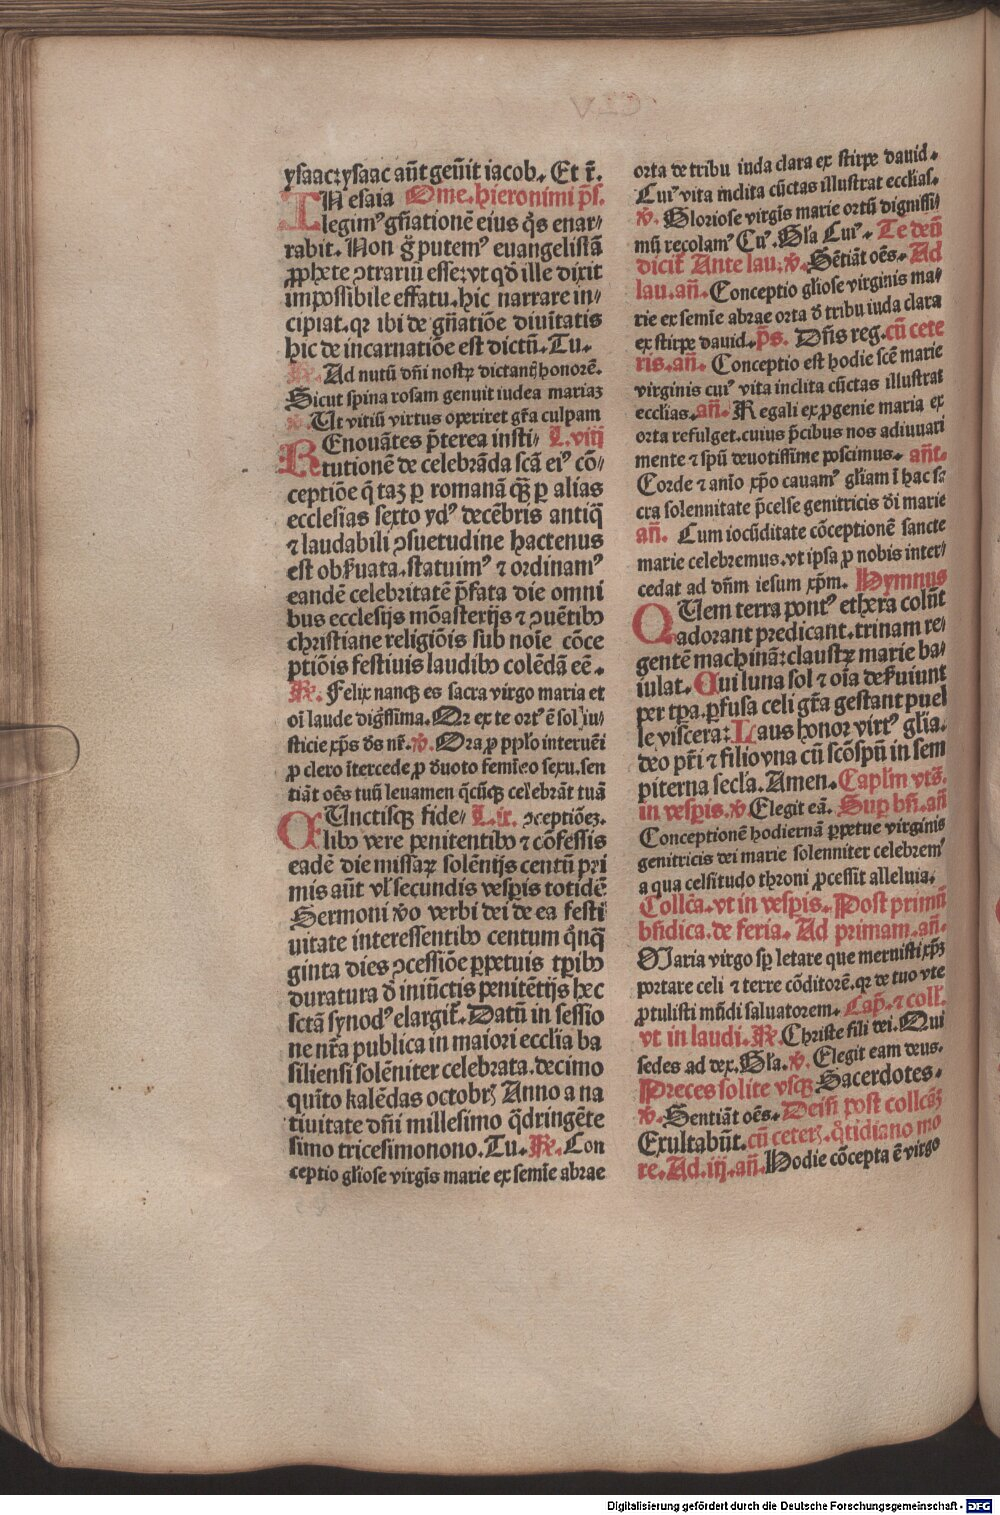 ysaac: ysaac aūt geńit iacob. Et r̄.
IN esaia Ome. hieronimi p̄s.
legimꝰ gn̄ationē eius q̊s enar-
rabit. Non g̊ putemꝰ euangelistā
ꝓphete ↄtrariū esse: vt qd̓ ille dixit
impossibile effatu. hic narrare in/
cipiat. qꝛ ibi de gn̄atiōe diuītatis
hic de incarnatiōe est dictū. Tu.
℟. Ad nutū dn̄i nostꝝ dictantꝭ honorē.
Sicut spina rosam genuit iudea mariaꝫ
℣. Ut vitiū virtus operiret gr̄a culpam
REnouātes p̄terea insti/ L. viij
tutionē de celebrāda scā eiꝰ cō/
ceptiōe q̄ taꝫ ꝑ romanā qꝫ̄ ꝑ alias
ecclesias sexto ydꝰ decēbris antiq̄
⁊ laudabili ↄsuetudine hactenus
est obẜuata. statuimꝰ ⁊ ordinamꝰ
eandē celebritatē p̄fata die omni
bus ecclesijs mōasterijs ⁊ ↄuētibꝰ
christiane religiōis sub noīe cōce
ptiōis festiuis laudibꝰ colēdā eē.
℟. Felix nanqꝫ es sacra virgo maria et
oī laude dig̊ssima. Qꝛ ex te ortꝰ ē sol iu/
sticie xp̄s ds̄ nr̄. ℣. Ora ꝓ pplo̓ interuēi
ꝓ clero ītercede ꝓ d̓uoto femīeo sexu. sen
tiāt oēs tuū leuamen q̄cūqꝫ celebrāt tuā
CUnctisqꝫ fide/ L. ix. ↄceptiōeꝫ.
libꝰ vere penitentibꝰ ⁊ cōfessis
eadē die missaꝝ solēnijs centū pri
mis aūt vl̓ secundis vesꝑis totidē
Sermoni v̓o verbi dei de ea festi
uitate interessentibꝰ centum q̊nq̄
ginta dies ↄcessiōe ꝑpetuis tꝑibꝰ
duratura d̓ iniūctis penitētijs hec
sctā synodꝰ elargit᷑. Datū in sessio
ne nr̄a publica in maiori ecclia ba
siliensi solēniter celebrata. decimo
quīto kalēdas octobrꝭ Anno a na
tiuitate dn̄i millesimo q̄dringēte
simo tricesimonono. Tu. ℟. Con
ceptio gl̓iose virgīs marie ex semīe abrae
orta de tribu iuda clara ex stirpe dauid.
Cuiꝰ vita inclita cūctas illustrat ecclīas.
℣. Gloriose virgīs marie ortū dignissi/
mū recolamꝰ Cuꝰ. Gl̓a Cuiꝰ. Te deū
dicit᷑ Ante lau: ℣. Sētiāt oēs. Ad
lau. an̄. Conceptio gl̓iose virginis ma/
rie ex semīe abrae orta d̓ tribu iuda clara
ex stirpe dauid. p̄s. Dn̄s reg. cū cete
ris. an̄. Conceptio est hodie scē marie
virginis cuiꝰ vita inclita cūctas illustrat
ecclias. an̄. Regali ex ꝓgenie maria ex
orta refulget. cuius p̄cibus nos adiuuari
mente ⁊ spū deuotissime poscimus. an̄t.
Corde ⁊ anīo xp̄o canamꝰ gl̓iam ī hac sa
cra solennitate p̄celse genitricis dī marie
an̄. Cum iocūditate cōceptionē sancte
marie celebremus. vt ipsa ꝓ nobis inter/
cedat ad dn̄m iesum xp̄m. Hymnus
QUem terra pontꝰ ethera colūt
adorant predicant. trinam re/
gentē machinā: claustꝝ marie ba/
iulat. Qui luna sol ⁊ oīa deẜuiunt
per tꝑa. ꝑfusa celi gr̄a gestant puel
le viscera: Laus honor virtꝰ gl̓ia.
deo pr̄i ⁊ filio vna cū scō spū in sem
piterna secl̓a. Amen. Capl̓m vts̄.
in vesꝑis. ℣. Elegit eā. Suꝑ bn̄. an̄
Conceptionē hodiernā ꝑpetue virginis
genitricis dei marie solenniter celebremꝰ
a qua celsitudo throni ꝓcessit alleluia.
Collc̄a. vt in vesꝑis. Post primū
bn̄dica. de feria. Ad primam. an̄.
Maria virgo sꝑ letare que meruisti xp̄ꝫ
portare celi ⁊ terre cōditorē. qꝛ de tuo vte
ꝓtulisti mūdi saluatorem. Cap̄. ⁊ coll̓.
vt in laudi. ℟. Christe fili dei. Qui
sedes ad dex. Gl̓a. ℣. Elegit eam deus.
Preces solite vsqꝫ Sacerdotes.
℣. Sentiāt oēs. Deīn post collcāꝫ
Exultabūt. cū ceterꝭ. q̊tidiano mo
re. Ad. iij. an̄. Hodie cōcepta ē virgo
Digitalisierung gefördert durch die Deutsche Forschungsgemeinschaft - DFG